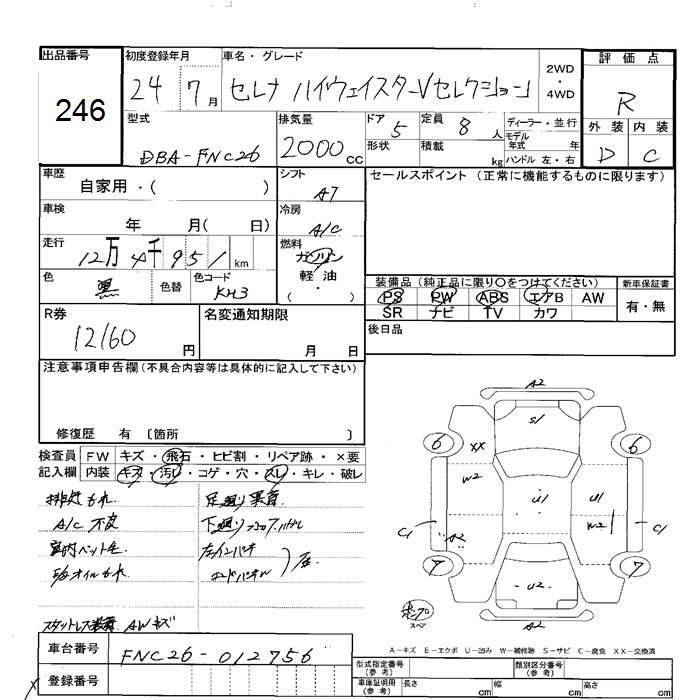 出品番号
246
初度登録年月
24 7月
車名・グレード
セレナ ハイウェイスターVセレクション
2WD
・
4WD
評価点
R
外装 内装
D C
型式
DBA-FNC26
排気量
2000cc
ドア 5
形状
定員 8人
積載 kg
ディーラー・並行
モデル年式 年
ハンドル 左・右
車歴
自家用・( )
シフト
AT
セールスポイント (正常に機能するものに限ります)
車検
年 月( 日)
冷房
A/C
走行
12万4千951km
燃料
ガソリン
軽油
( ・ )
色
黒
色替
色コード
KH3
装備品 (純正品に限り○をつけてください)
PS PW ABS エアB AW
SR ナビ TV カワ
新車保証書
有・無
R券
12160円
名変通知期限
月 日
後日品
注意事項申告欄(不具合内容等は具体的に記入して下さい)
修復歴 有 〔箇所 〕
検査員記入欄
FW キズ・飛石・ヒビ割・リペア跡・×要
内装 キズ・汚レ・コゲ・穴・スレ・キレ・破レ
排気もれ
足廻り異音
A/C不良
室内ペット毛
左インパネ
オイルもれ
スタットレス装着 AWキズ
A2
S1
6 6
XX
W2
U1
U1
W2
C1 C1
"A2"
7 7
U2
A2
スペア
A-キズ E-エクボ U-凹み W-補修跡 S-サビ C-腐食 XX-交換済
車台番号
FNC26-012756
登録番号
型式指定番号(参考)
類別区分番号(参考)
車庫証明用(参考)
長さ cm
幅 cm
高さ cm